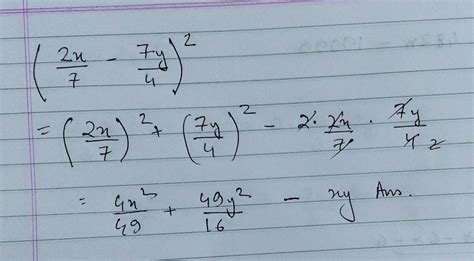 (2x/7 - 7y/4)²
= (2x/7)² + (7y/4)² - 2 · 2x/7 · 7y/4 2
= 4x²/49 + 49y²/16 - xy Ans.